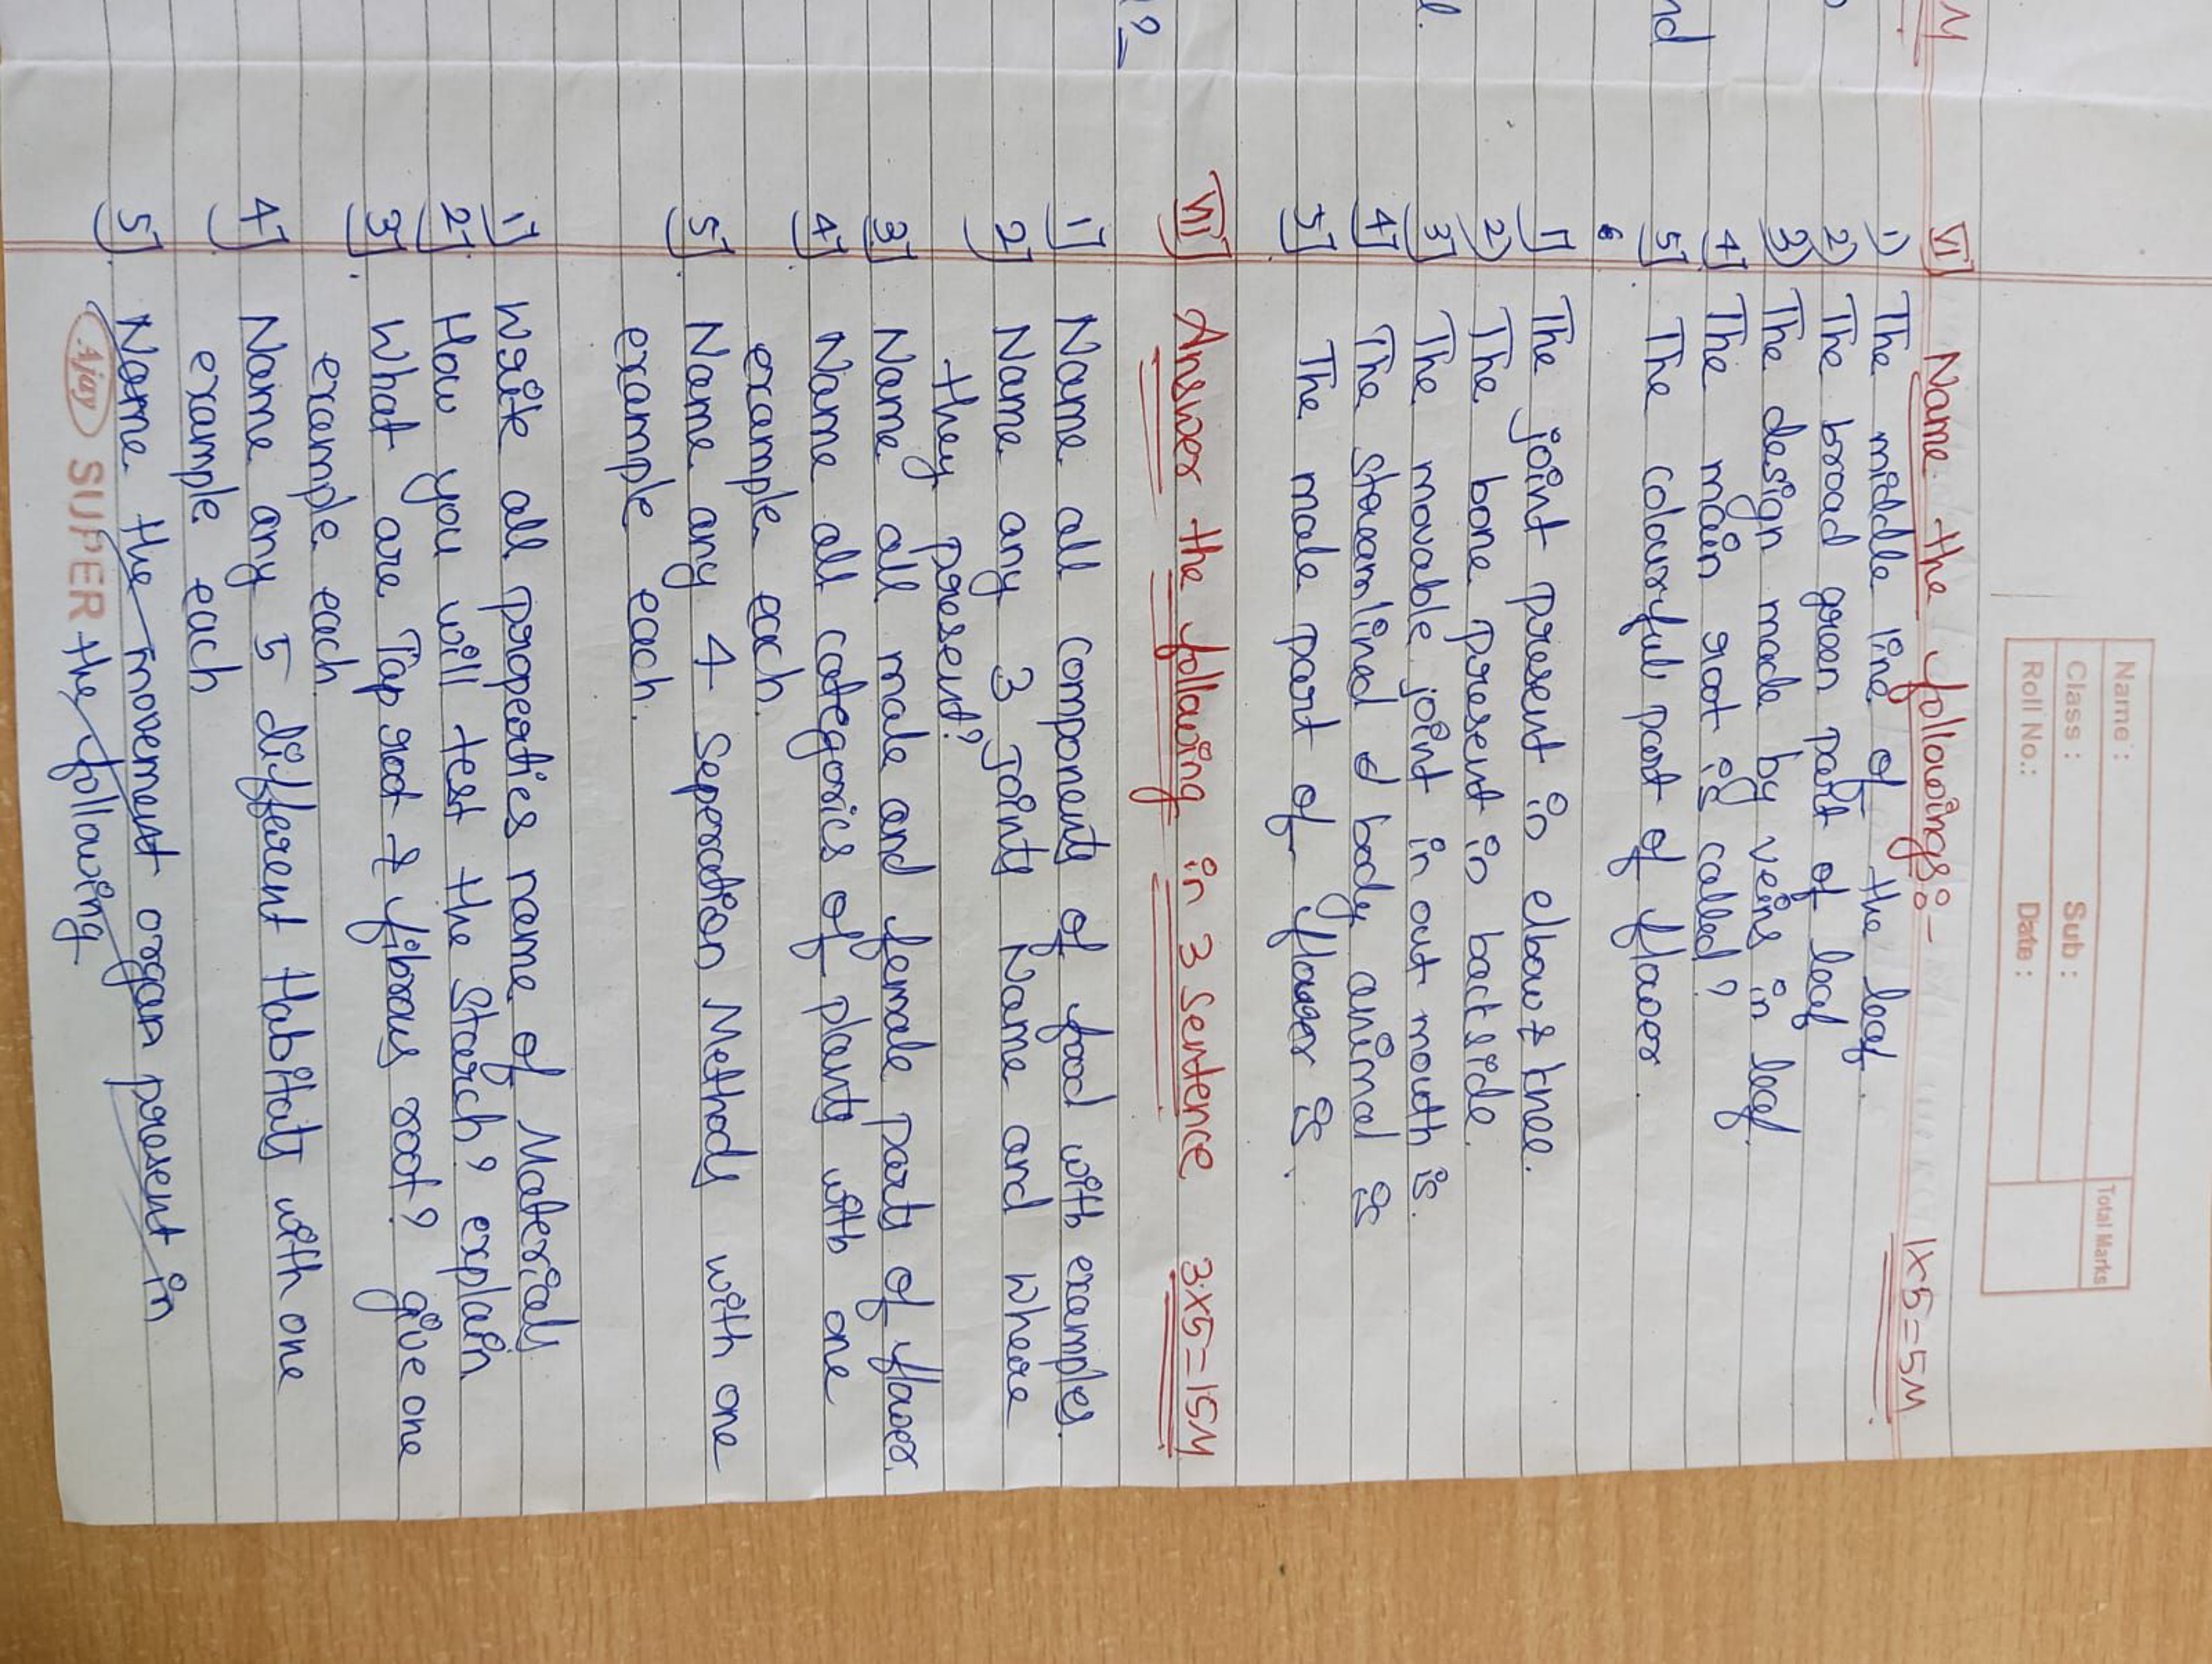 Name :
Class : Sub :
Roll No.: Date :
Total Marks
M
nd
l.
?
VI] Name the followings:- 1×5=5M
1) The middle line of the leaf.
2) The broad green part of leaf
3) The design made by veins in leaf.
4] The main root is called?
5] The colourful part of flower.
1] The joint present in elbow & knee.
2) The bone present in backside.
3] The movable joint in our mouth is.
4] The streamlined body animal is
5] The male part of flower is.
VII] Answer the following in 3 Sentence 3×5=15M
1] Name all components of food with examples.
2] Name any 3 Joints Name and where
they present?
3] Name all male and female parts of flower.
4] Name all categories of plants with one
example each.
5]. Name any 4 Seperation Methods with one
example each.
1] Write all properties name of Materials
2]. How you will test the Starch? explain
3]. What are Tap root & fibrous root? give one
example each.
4] Name any 5 different Habitats with one
example each
5]. Name the movement organ present in
Ajay SUPER the following.